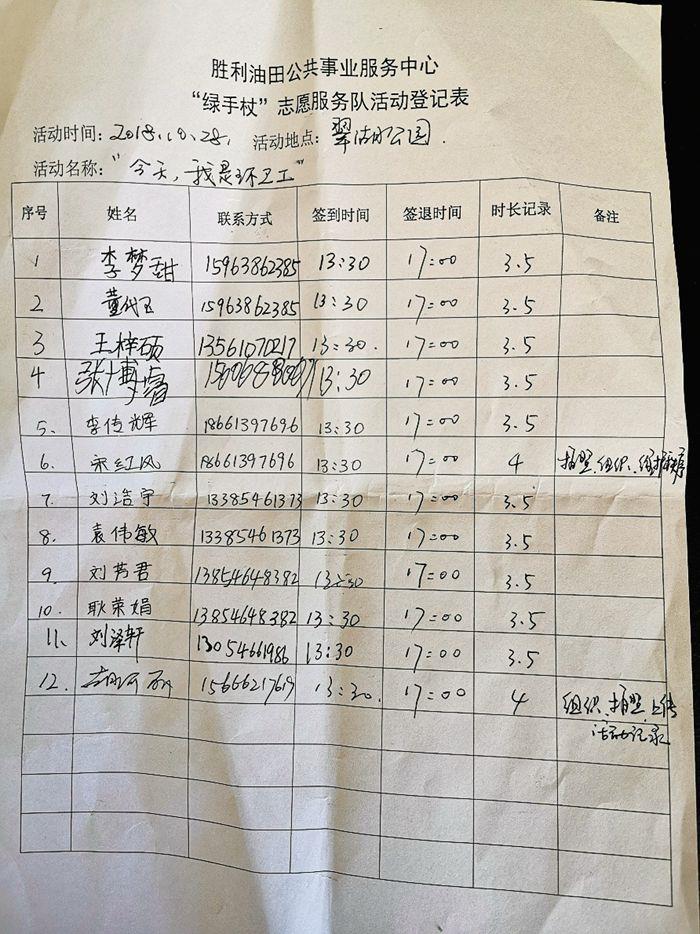 胜利油田公共事业服务中心
“绿手杖”志愿服务队活动登记表
活动时间：2018.10.28. 活动地点：翠湖公园.
活动名称："今天，我是环卫工"
序号 姓名 联系方式 签到时间 签退时间 时长记录 备注
1 李梦甜 15963862385 13:30 17:00 3.5
2 董代玉 15963862385 13:30 17:00 3.5
3 王梓硕 13561070217 13:30. 17:00 3.5
4 张博睿 13:30 17:00 3.5
5. 李传辉 18661397696 13:30 17:00 3.5
6. 宋红风 18661397696 13:30 17:00 4 拍照、组织、维持秩序
7. 刘浩宇 13385461373 13:30 17:00 3.5
8. 袁伟敏 13385461373 13:30 17:00 3.5
9. 刘芳君 13854648382 13:30 17:00 3.5
10. 耿荣娟 13854648382 13:30 17:00 3.5
11. 刘泽轩 13054661986 13:30 17:00 3.5
12. 15666217619 13:30. 17:00 4 组织、拍照、上传
活动记录